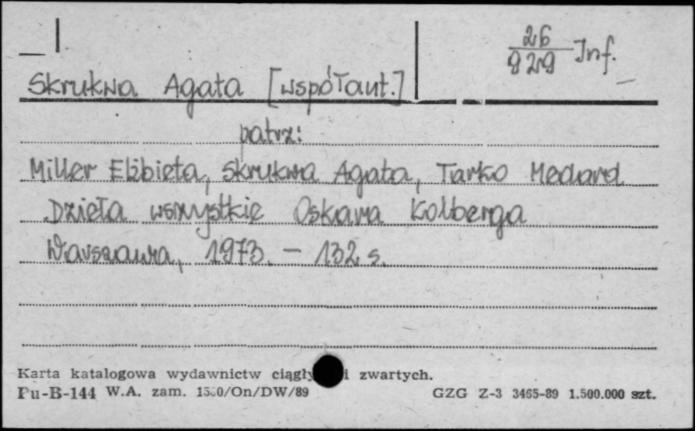 26
829 Inf.
Skrukwa Agata [współaut.]
patrz:
Miller Elżbieta, Skrukwa Agata, Tarko Medard
Dzieła wszystkie Oskara Kolberga
Warszawa, 1973. – 132 s.
Karta katalogowa wydawnictw ciągły i zwartych.
Pu-B-144 W.A. zam. /On/DW/89 GZG Z-3 3465-89 1.500.000 szt.